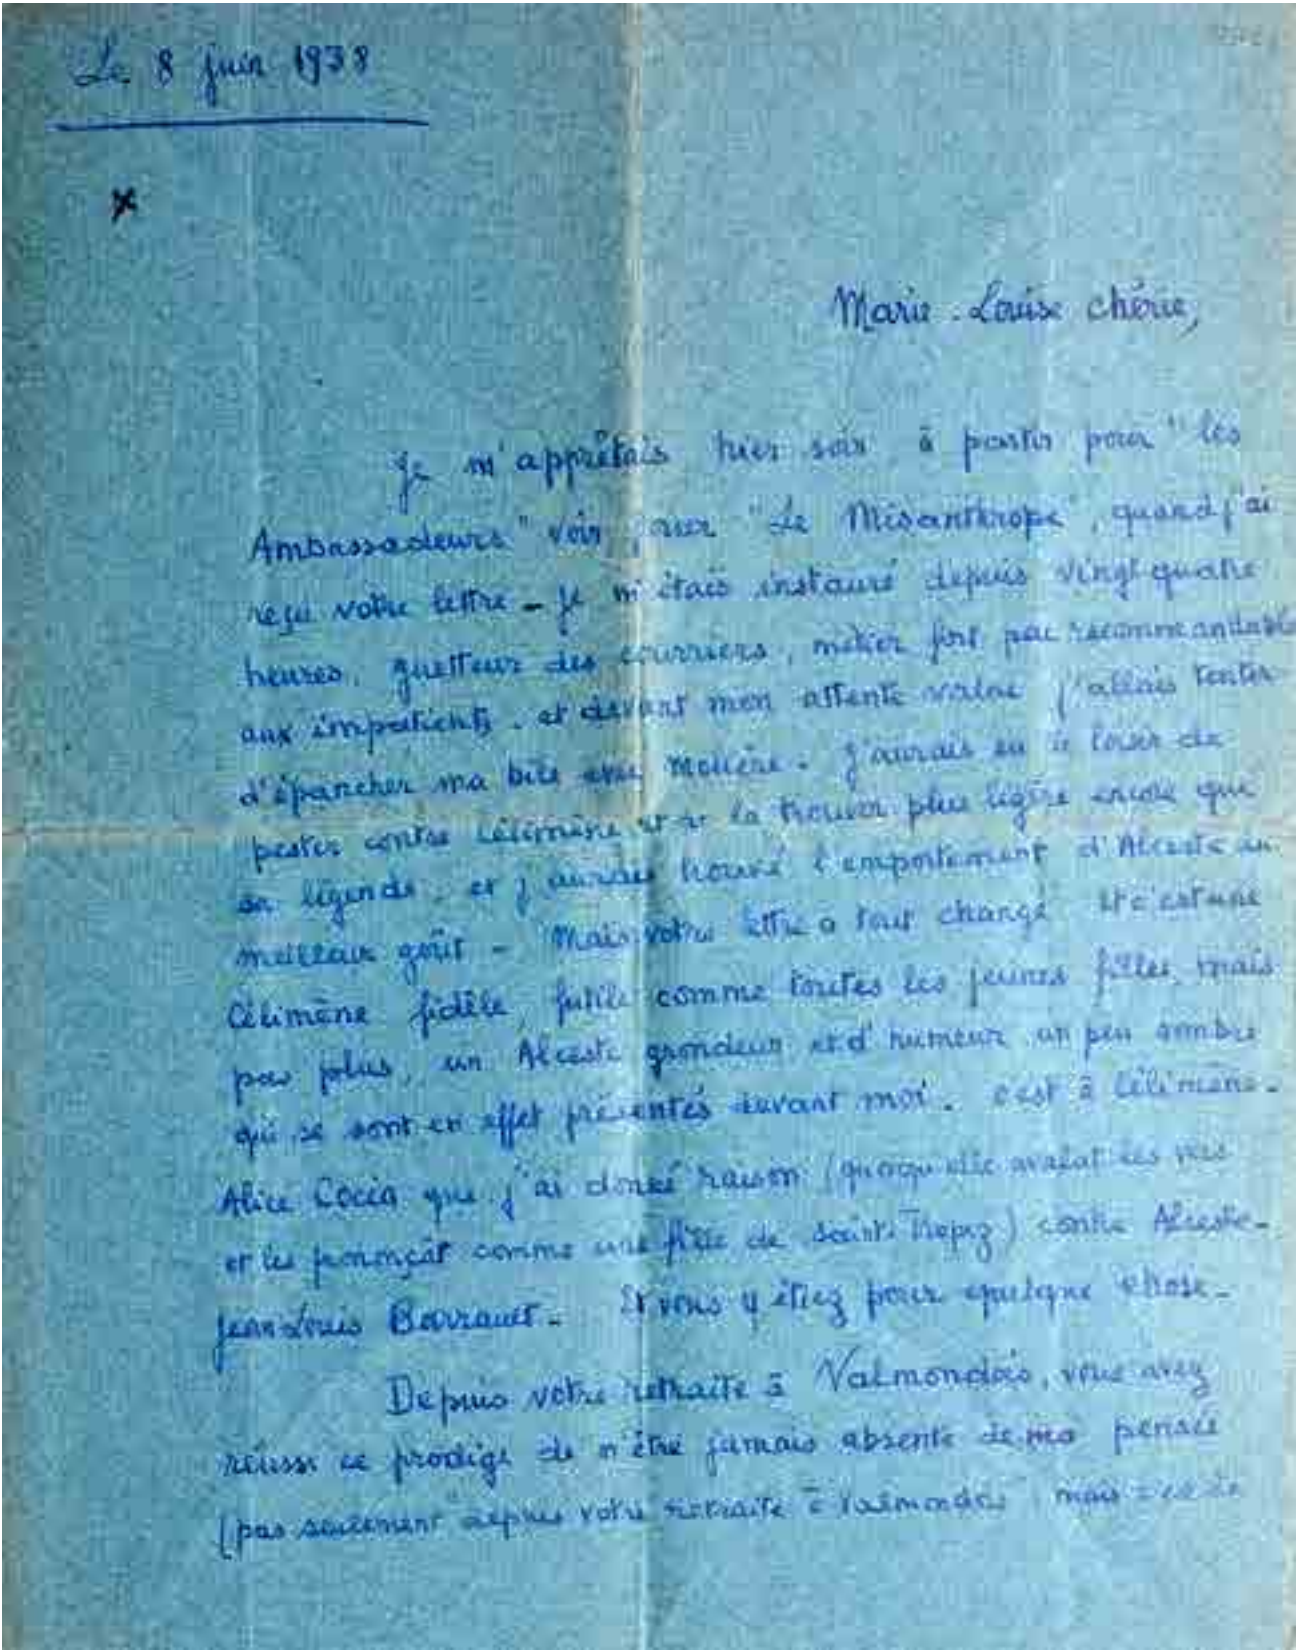 Le 8 juin 1938
x
Marie-Louise chérie,
Je m'apprêtais hier soir à partir pour "les
Ambassadeurs" voir jouer "Le Misanthrope", quand j'ai
reçu votre lettre - Je m'étais instauré depuis vingt-quatre
heures, guetteur des courriers, métier fort peu recommandable
aux impatients. et devant mon attente vaine j'allais tenter
d'épancher ma bile avec Molière. J'aurais eu le loisir de
pester contre Célimène et de la trouver plus légère encore que
sa légende, et j'aurais trouvé l'emportement d'Alceste du
meilleur goût - Mais votre lettre a tout changé et c'est une
Célimène fidèle, futile comme toutes les jeunes filles, mais
pas plus, un Alceste grondeur et d'humeur un peu sombre
qui se sont en effet présentés devant moi. C'est à Célimène-
Alice Cocéa que j'ai donné raison (quoiqu'elle avalât les vers
et les prononçât comme une fille de Saint-Tropez) contre Alceste-
Jean Louis Barrault. Et vous y étiez pour quelque chose-
Depuis votre retraite à Valmondois, vous avez
réussi ce prodige de n'être jamais absente de ma pensée
(pas seulement "depuis votre retraite à Valmondois", mais